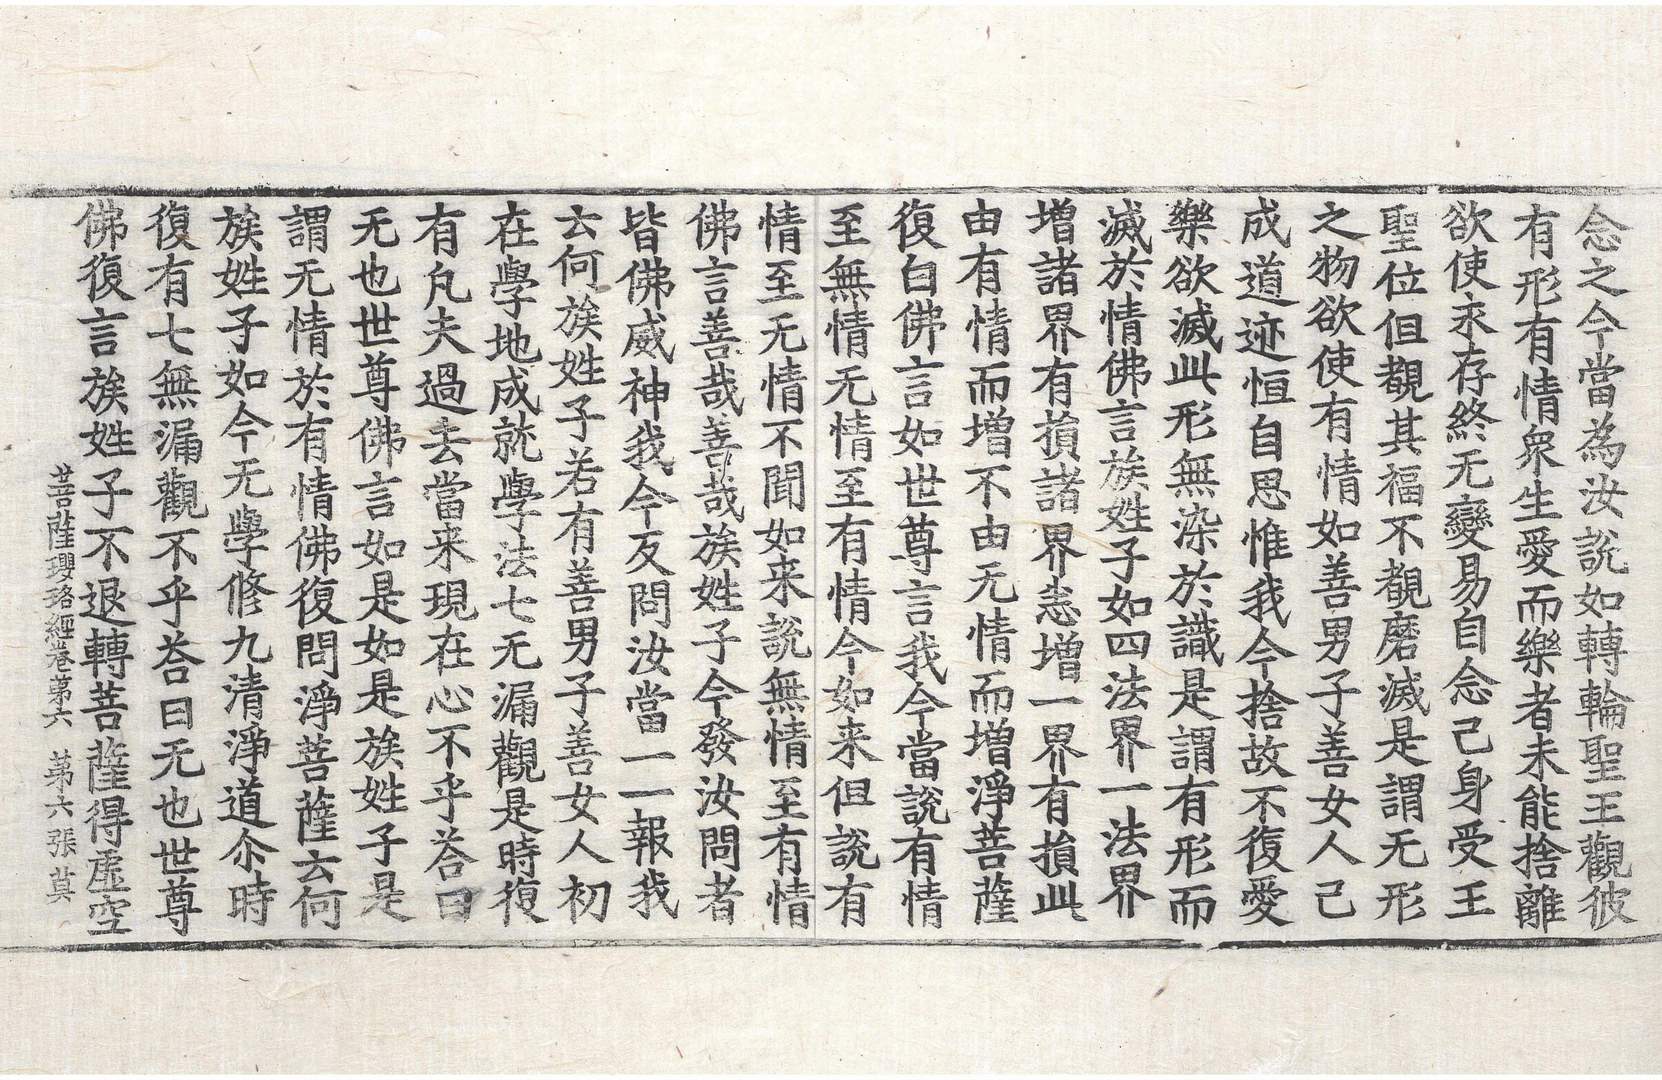 念之今當為汝說如轉輪聖王觀彼
有形有情衆生愛而樂者未能捨離
欲使永存終无變易自念己身受王
聖位但覩其福不覩磨滅是謂无形
之物欲使有情如善男子善女人已
成道迹恒自思惟我今捨故不復愛
樂欲滅此形無染於識是謂有形而
滅於情佛言族姓子如四法界一法界
增諸界有損諸界悉增一界有損此
由有情而增不由无情而增淨菩薩
復白佛言如世尊言我今當說有情
至無情无情至有情今如来但說有
情至无情不聞如来說無情至有情
佛言善哉善哉族姓子今發汝問者
皆佛威神我今反問汝當一一報我
云何族姓子若有善男子善女人初
在學地成就學法七无漏觀是時復
有凡夫過去當来現在心不乎荅曰
无也世尊佛言如是如是族姓子是
謂无情於有情佛復問淨菩薩云何
族姓子如今无學修九清淨道尒時
復有七無漏觀不乎荅曰无也世尊
佛復言族姓子不退轉菩薩得虛空
菩薩瓔珞經卷苐六 苐六張 莫